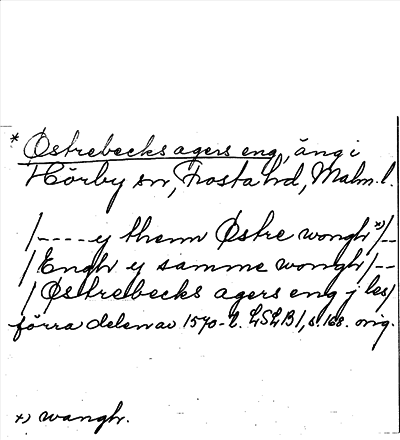 * Østrebecks agers eng, äng i
Hörby sn, Frosta hd, Malm. l.
/---- y thenn Østre wongh x) /--
/ Engh y samme wongh /--
/ Østrebecks agers eng j les/
förra delen av 1570-t. LSLB 1, s. 168. orig.
x) wangh.